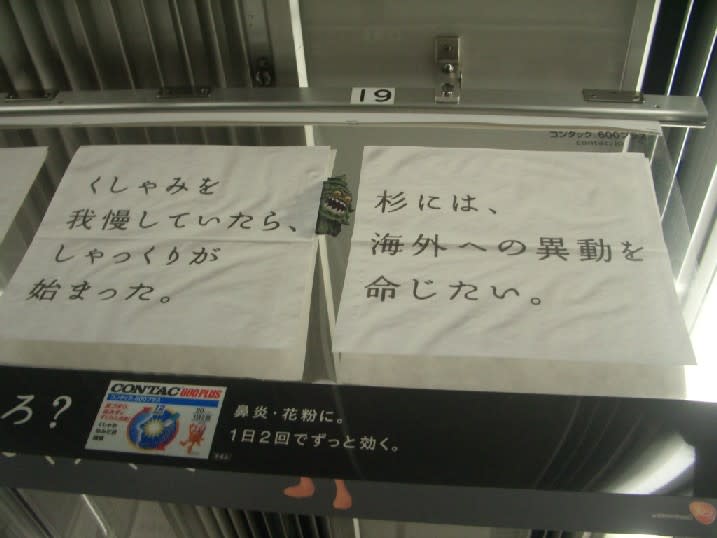 19
コンタック 600プ
くしゃみを
我慢していたら、
しゃっくりが
始まった。
杉には、
海外への異動を
命じたい。
ろ?
CONTAC 600PLUS
鼻炎・花粉に。
1日2回でずっと効く。